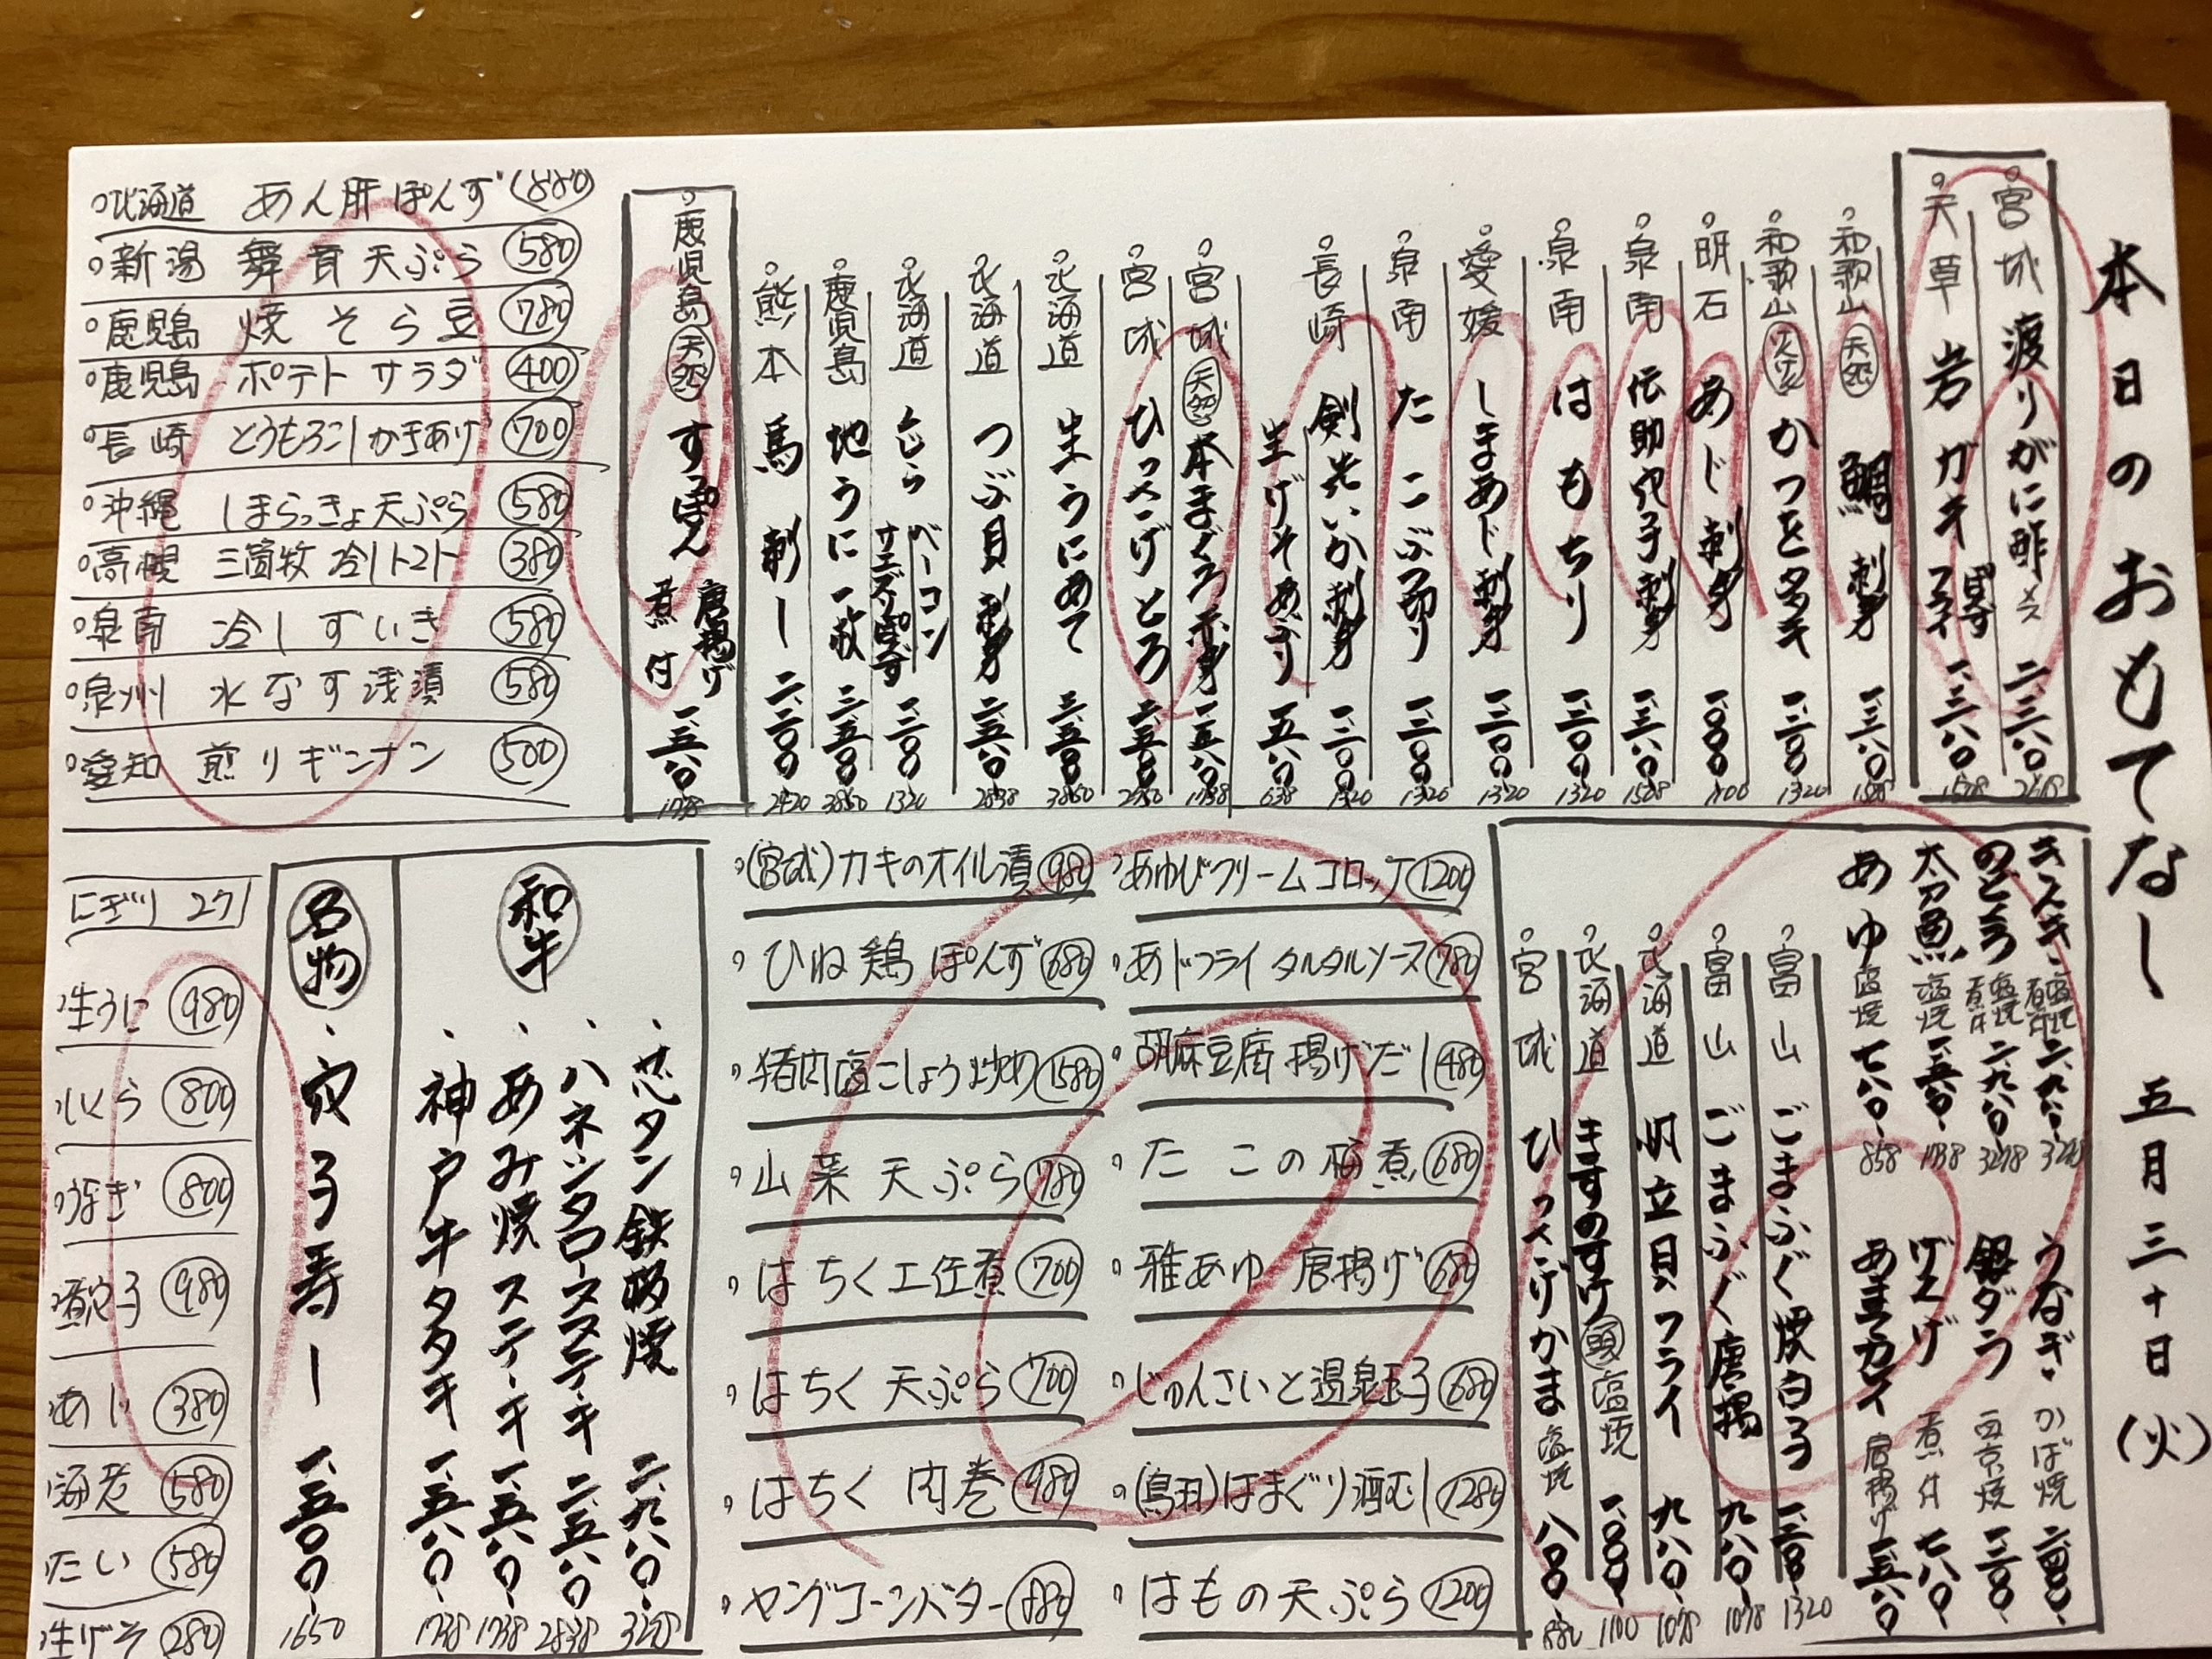 本日のおもてなし 五月三十日(火)
宮城 渡りがに酢 二三八〇 2618
天草 岩ガキ フライ 一三八〇 1518
和歌山 天然 鯛刺身 一三八〇 1518
和歌山 かつをタタキ 一二〇〇 1320
明石 あじ刺身 一〇〇〇 1100
泉南 伝助穴子刺身 一三八〇 1518
泉南 はもちり 一二〇〇 1320
愛媛 しまあじ刺身 一二〇〇 1320
泉南 たこぶつ切り 一二〇〇 1320
長崎 剣先いか刺身 一二〇〇 1320
生げそあぶり 五八〇 638
宮城 天然 本まぐろ赤身 一五八〇 1738
宮城 ひっさげとろ 二五〇〇 2750
北海道 生うにあて 三五〇〇 3850
北海道 つぶ貝刺身 二五八〇 2838
北海道 くじら ベーコン サエズリぽんず 一二〇〇 1320
鹿児島 地うに一枚 三五〇〇 3850
熊本 馬刺し 二二〇〇 2420
鹿児島 天然 すっぽん 唐揚げ 煮付 一五八〇 1738
北海道 あん肝ぽんず 880
新潟 舞茸天ぷら 580
鹿児島 焼そら豆 780
鹿児島 ポテトサラダ 400
長崎 とうもろこしかきあげ 700
沖縄 しまらっきょ天ぷら 580
高槻 三箇牧冷しトマト 380
泉南 冷しずいき 580
泉州 水なす浅漬 580
愛知 煎りギンナン 500
キスキ 塩焼 煮付 二九八〇 3278
のどぐろ 塩焼 煮付 二九八〇 3278
太刀魚 塩焼 一五八〇 1738
あゆ 塩焼 七八〇 858
うなぎ かば焼
銀ダラ 西京焼 一二〇〇
げそげ 煮付 七八〇
あまカレイ 唐揚げ 一五八〇
富山 ごまふぐ焼白子 一二〇〇 1320
富山 ごまふぐ唐揚 九八〇 1078
北海道 帆立貝フライ 九八〇 1078
北海道 きすのすけ 頭 塩焼 一〇〇〇 1100
宮城 ひっさげかま塩焼 八〇〇 880
あゆびクリームコロッケ 1200
あじフライ タルタルソース 780
胡麻豆腐揚げだし 480
たこの柚煮 680
稚あゆ唐揚げ 680
じゅんさいと温泉玉子 680
(鳥羽)はまぐり酒むし 1280
はもの天ぷら 1200
(宮城)カキのオイル漬 980
ひね鶏ぽんず 680
猪肉塩こしょう炒め 1580
山菜天ぷら 780
はちく土佐煮 700
はちく天ぷら 700
はちく肉巻 980
ヤングコーンバター 880
和牛
芯タン鉄板焼 二九八〇 3278
ハネシタロースステーキ 二五八〇 2838
あみ焼ステーキ 一五八〇 1738
神戸牛タタキ 一五八〇 1738
名物
穴子寿し 一五〇〇 1650
にぎり 2カン
生うに 980
いくら 800
うなぎ 800
煮穴子 980
あじ 380
海老 580
たい 580
生げそ 280